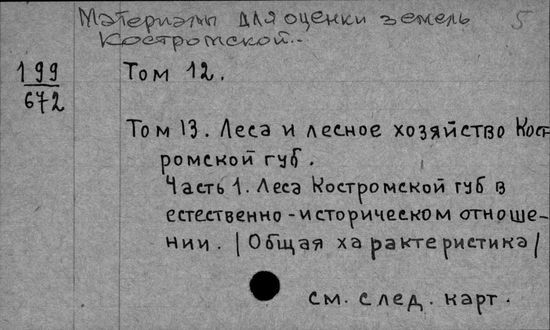 Материалы для оценки земель 5
Костромской..
199
672
Том 12.
Том 13. Леса и лесное хозяйство Кост-
ромской губ.
Часть 1. Леса Костромской губ в
естественно-историческом отноше-
нии. /Общая характеристика/
см. след. карт.